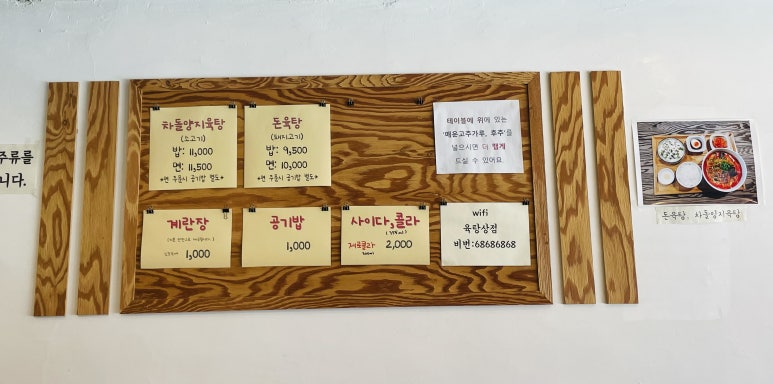 주류를
니다.
차돌양지육탕
(소고기)
밥: 11,000
면: 11,500
*면 주문시 공기밥 별도*
돈육탕
(돼지고기)
밥: 9,500
면: 10,000
*면 주문시 공기밥 별도*
테이블에 위에 있는
'매운고추가루, 후추'를
넣으시면 더 맵게
드실 수 있어요
계란장
1,000
공기밥
1,000
사이다,콜라
제로콜라 2,000
wifi
육탕상점
비번:68686868
돈육탕, 차돌양지육탕